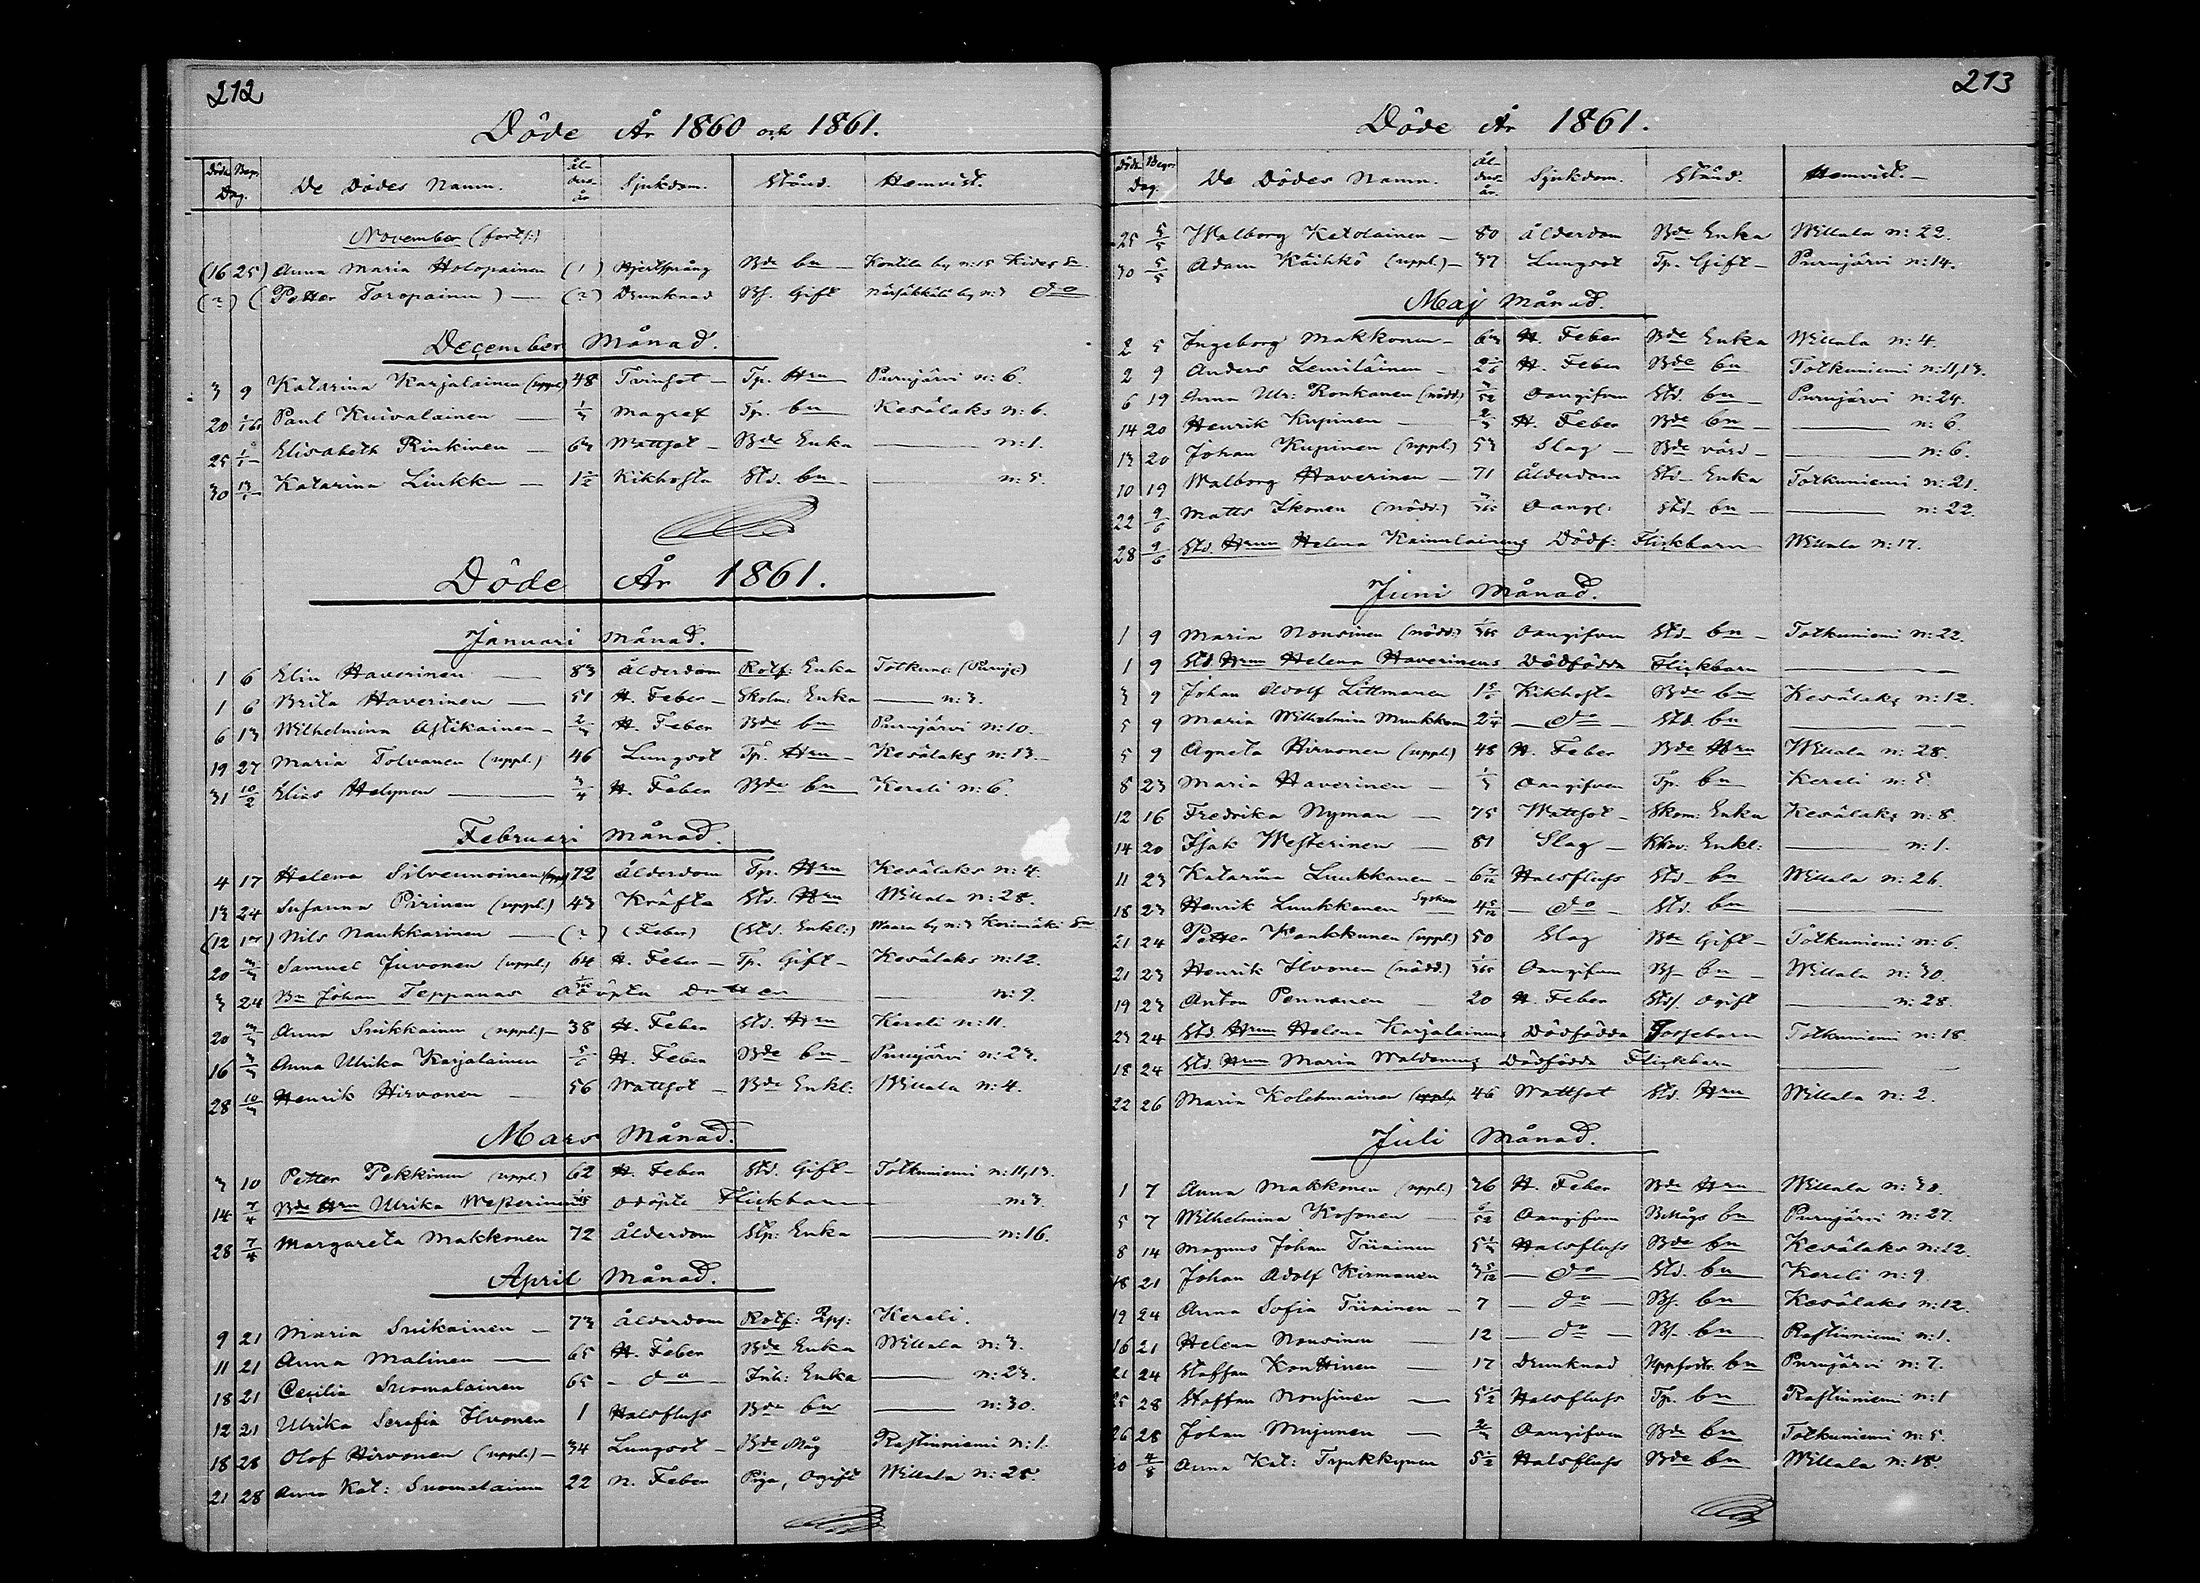 212
Döde År 1860 och 1861.
Döde Begr. Dag. De Dödes Namn. Ål- ders- år Sjukdom. Stånd. Hemvist.
November (forts:)
(16 25) Anna Maria Holopainen (1) Hjertsprång Bde bn Kontila by n:15 Kides Sn
(?) (Petter Toropainen) — (?) Drunknad Bs. Gift Närsäkkälä by n:3 do
December Månad.
3 9 Katarina Karjalainen (uppl.) 48 Tvinsot Tp. Hru Purujärvi n: 6.
20 1/6 Paul Kuivalainen — 1/3 Magref Tp. bn Kesälaks n: 6.
25 1/1 Elisabeth Rinkinen — 63 Wattsot Bde Enka — n: 1.
30 13/1 Katarina Liukku — 1 1/2 Kikhosta Std. bn — n: 5.
Döde År 1861.
Januari Månad.
1 6 Elin Haverinen — 83 Ålderdom Rotf: Enka Totkuni (Purujr)
1 6 Brita Haverinen — 51 H. Feber Skolm: Enka — n: 3.
6 13 Wilhelmina Astikainen 2/3 H. Feber Bde bn Purujärvi n: 10.
19 27 Maria Tolvanen (uppl.) 46 Lungsot Tp. Hru Kesälaks n: 13.
31 10/2 Elias Halynen — 3/4 H. Feber Bde bn Kereli n: 6.
Februari Månad.
4 17 Helena Silvennoinen (uppl) 72 Ålderdom Tp. Hru Kesälaks n: 4.
13 24 Susanna Pirinen (uppl.) 43 Kräfta Std. Hru Willala n: 28.
(12 17) Nils Naukkarinen — (?) (Feber) (Std. Enkl:) Waara by n: 3 Kerimäki Sn
20 3/3 Samuel Juvonen (uppl.) 64 H. Feber Tp. Gift Kesälaks n: 12.
3 24 Bn Johan Teppanas Odöpta Dotter — n: 9.
20 3/3 Anna Snikkainen (uppl.) 38 H. Feber Std. Hru Kereli n: 11.
16 3/3 Anna Ulrika Karjalainen 5/6 H. Feber Bde bn Purujärvi n: 23.
28 10/3 Henrik Hirvonen — 56 Wattsot Bde Enkl: Willala n: 4.
Mars Månad.
3 10 Petter Pekkinen (uppl.) 62 H. Feber Std. Gift Totkuniemi n: 11,13.
14 7/4 Bde Hru Ulrika Westerinens odöpte Flickbarn — n: 3.
28 7/4 Margareta Makkonen 72 Ålderdom Stp: Enka — n: 16.
April Månad.
9 21 Maria Snikainen — 73 Ålderdom Rotf: Pp: Kereli.
11 21 Anna Malinen — 65 H. Feber Bde Enka Willala n: 3.
18 21 Cecilia Suomalainen 65 do Inh: Enka — n: 23.
12 21 Ulrika Serafia Ilvonen 1 Halsfluss Bde bn — n: 30.
18 28 Olof Hirvonen (uppl.) 34 Lungsot Bde Måg Rastinniemi n: 1.
21 28 Anna Kat: Suomalainen 22 N. Feber Piga, Ogift Willala n: 28.
213
Döde År 1861.
Döde Begr. Dag. De Dödes Namn. Ål- ders- år. Sjukdom. Stånd. Hemvist.
25 5/5 Walborg Ketolainen — 80 Ålderdom Bde Enka Willala n: 22.
30 5/5 Adam Käihkö (uppl.) 37 Lungsot Tp. Gift Purujärvi n: 14.
Maj Månad.
2 5 Ingeborg Makkonen 63 H. Feber Bde Enka Willala n: 4.
2 9 Anders Lemiläinen 2 1/6 H. Feber Bde bn Totkuniemi n: 11,13.
6 19 Anna Ulr: Ronkanen (nödd.) 3/52 Oangifven Std. bn Purujärvi n: 24.
14 20 Henrik Kupinen — 2/3 H. Feber Bde bn — n: 6.
13 20 Johan Kupinen (uppl.) 53 Slag Bde värd — n: 6.
10 19 Walborg Haverinen 71 Ålderdom Std. Enka Totkuniemi n: 21.
22 9/6 Matts Ikonen (nödd.) 3/365 Oangf: Std. bn — n: 22.
28 9/6 Std. Hrun Helena Kainulainens Dödf: Flickbarn Willala n: 17.
Juni Månad.
1 9 Maria Nousinen (nödd.) 1/365 Oangifven Std. bn Totkuniemi n: 22.
1 9 Std Hrun Helena Haverinens Dödfödda Flickbarn —
3 9 Johan Adolf Littmanen 1 5/6 Kikhosta Bde bn Kesälaks n: 12.
5 9 Maria Wilhelmina Munkkonen 2 1/4 do Std. bn —
5 9 Agneta Hirvonen (uppl.) 48 H. Feber Bde Hru Willala n: 28.
8 23 Maria Haverinen — 1/3 Oangifven Tp. bn Kereli n: 5.
12 16 Fredrika Nyman — 75 Wattsot Skom: Enka Kesälaks n: 8.
14 20 Isak Westerinen — 81 Slag Enkl: — n: 1.
11 23 Katarina Luukkanen 6 7/12 Halsfluss Std. bn Willala n: 26.
18 23 Henrik Luukkanen Syskon 4 5/12 do Std. bn —
21 24 Petter Kankkunen (uppl.) 50 Slag Bde Gift Totkuniemi n: 6.
21 23 Henrik Ilvonen (nödd.) 1/365 Oangifven Bs. bn Willala n: 30.
19 23 Anton Pennanen — 20 H. Feber Stds. Ogift — n: 28.
23 24 Std Hrun Helena Karjalainens Dödfödda Gossebarn Totkuniemi n: 18
18 24 Std. Hrun Maria Waldenens Dödfödda Flickbarn —
22 26 Maria Kolehmainen (uppl.) 46 Wattsot Std. Hru Willala n: 2.
Juli Månad.
1 7 Anna Makkonen (uppl.) 36 H. Feber Bde Hru Willala n: 30.
5 7 Wilhelmina Kosonen — /52 Oangifven BMågs bn Purujärvi n: 27.
8 14 Magnus Johan Tiiainen 5 1/3 Halsfluss Bde bn Kesälaks n: 12.
18 21 Johan Adolf Kirmanen 3 5/12 do Std. bn Kereli n: 9.
19 24 Anna Sofia Tiiainen 7 do Bs. bn Kesälaks n: 12.
16 21 Helena Nousinen — 12 do Bs. bn Rastinniemi n: 1.
21 24 Staffan Konttinen — 17 Drunknad Uppfostr. bn Purujärvi n: 7.
25 28 Staffan Nousinen — 5 1/2 Halsfluss Tp. bn Rastinniemi n: 1
26 28 Johan Mujunen — 2/3 Oangifven Bde bn Totkuniemi n: 5.
30 4/8 Anna Kat: Tynkkynen 5 1/2 Halsfluss Bde bn Willala n: 18.